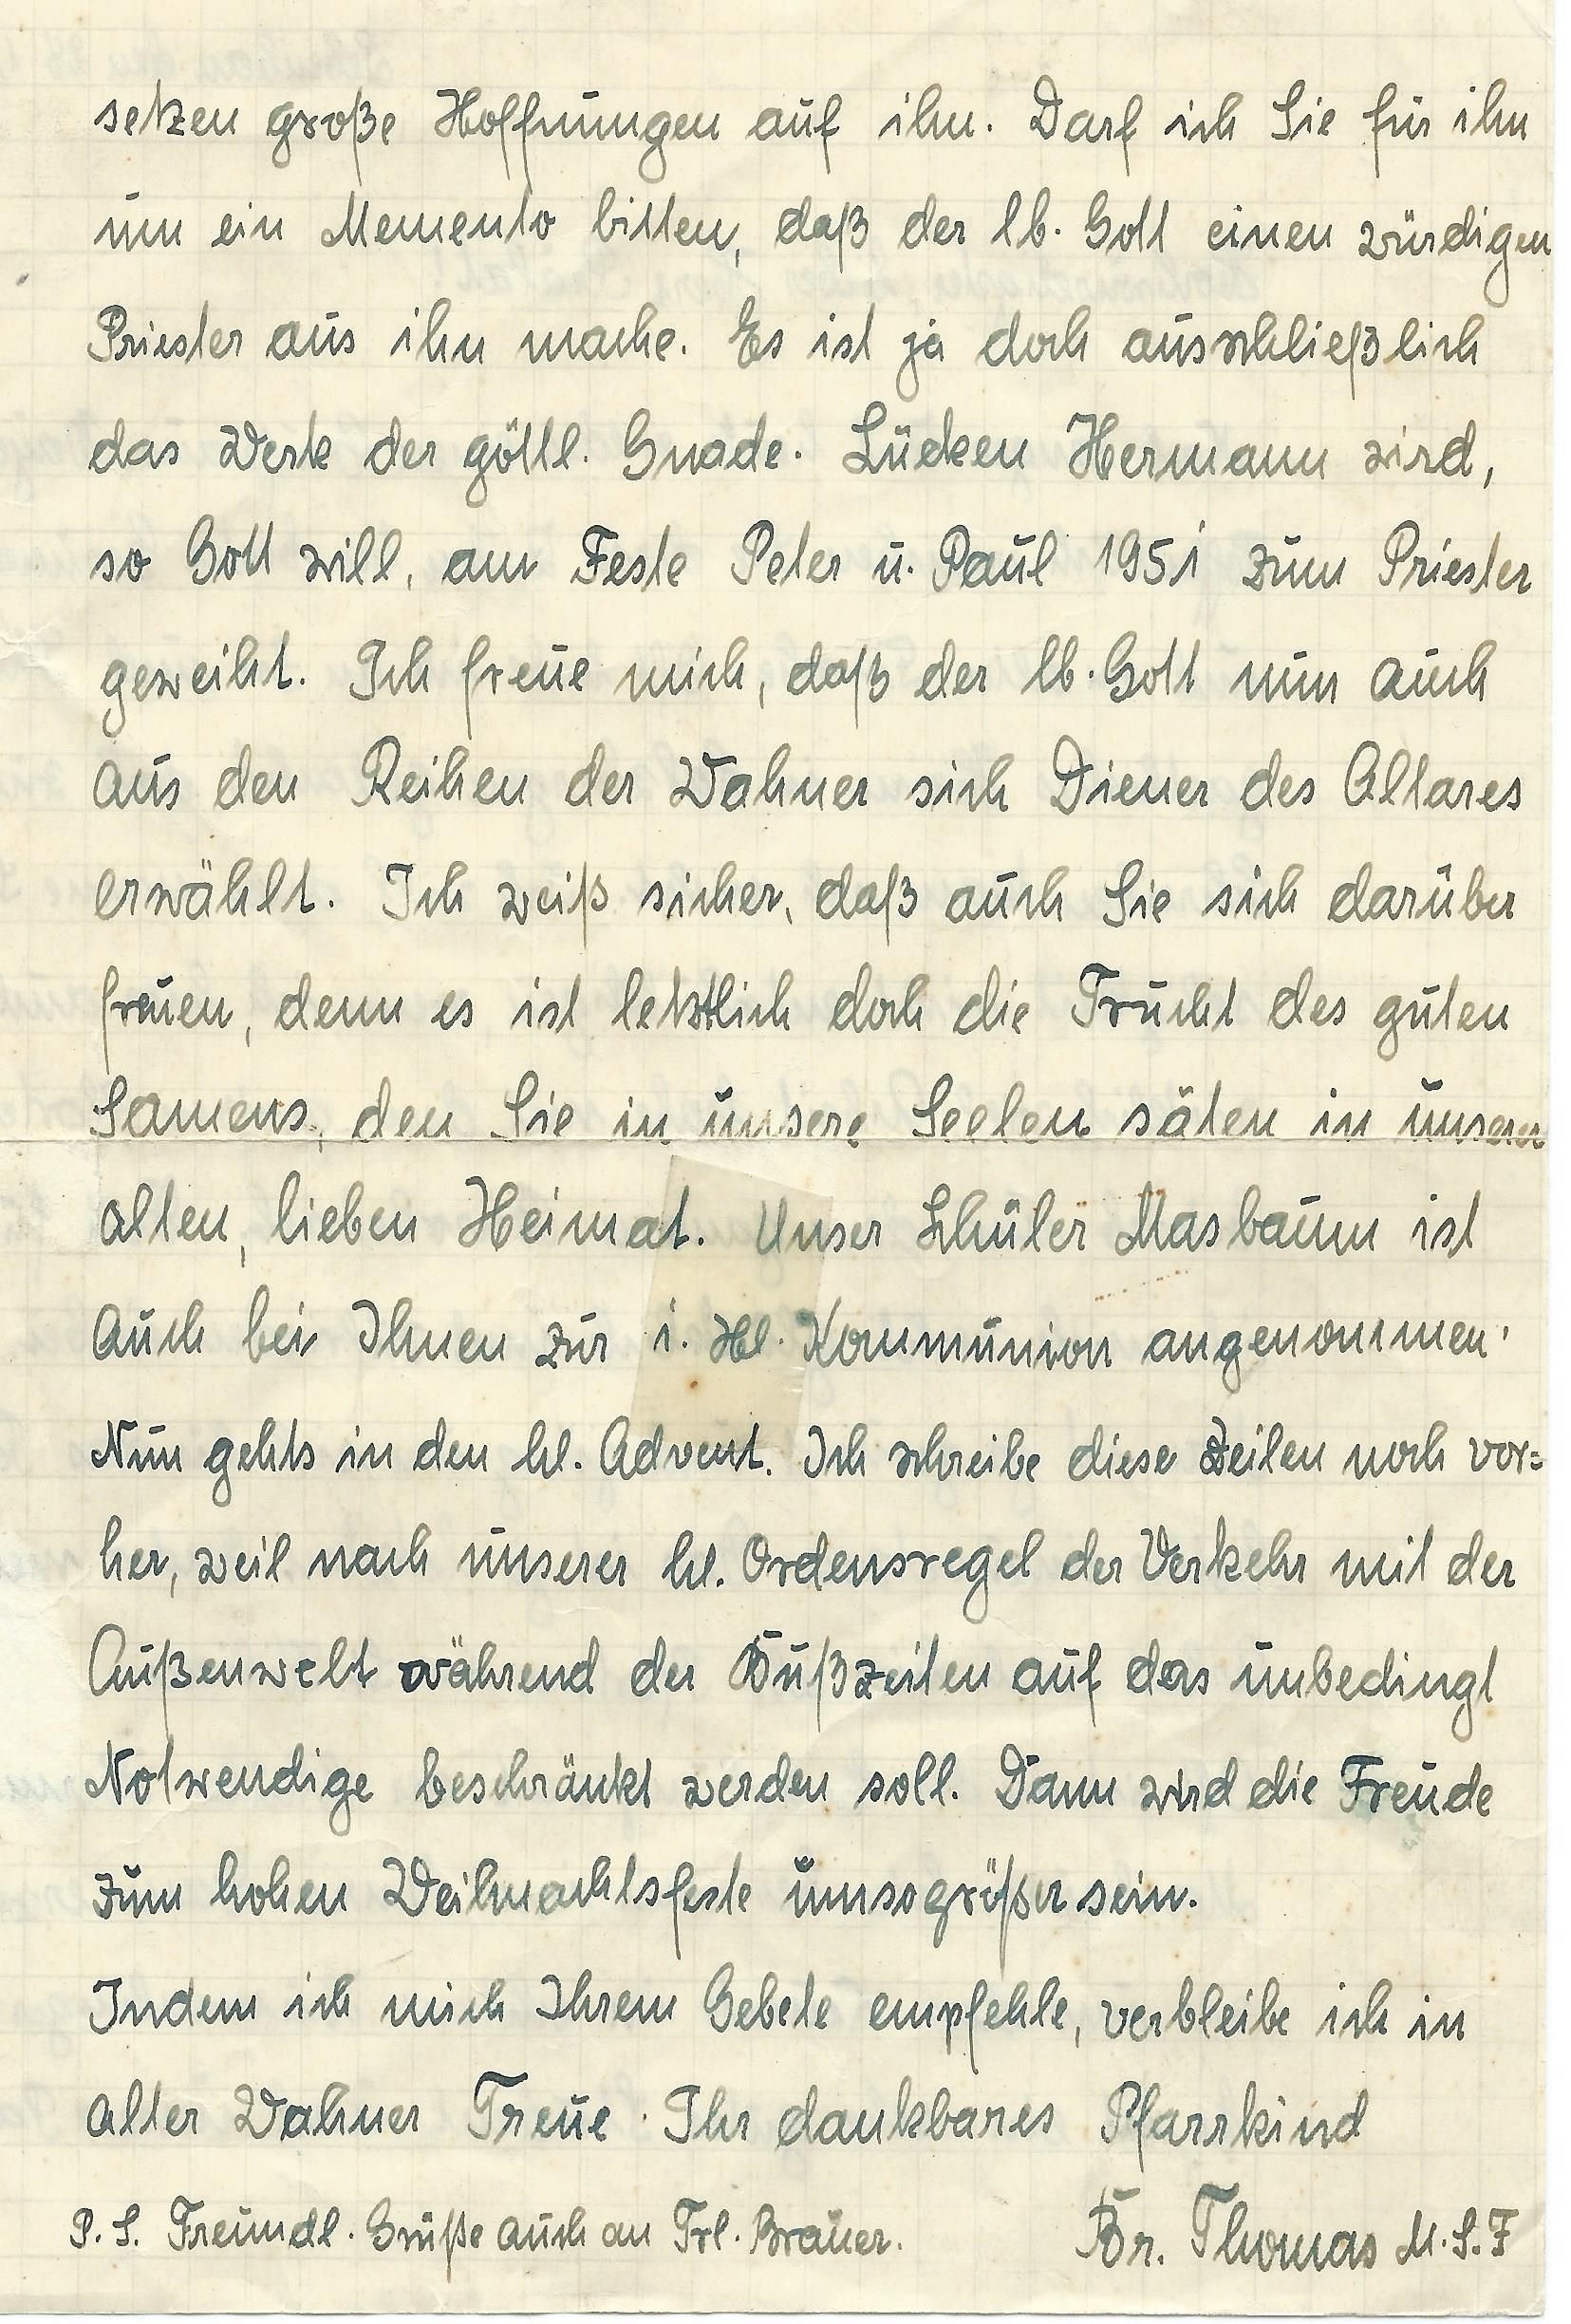 setzen große Hoffnungen auf ihn. Darf ich Sie für ihn
um ein Memento bitten, daß der lb. Gott einen würdigen
Priester aus ihn mache. Es ist ja doch ausschließlich
das Werk der göttl. Gnade. Lücken Hermann wird,
so Gott will, am Feste Peter u. Paul 1951 zum Priester
geweiht. Ich freue mich, daß der lb. Gott nun auch
aus den Reihen der Wahner sich Diener des Altares
erwählt. Ich weiß sicher, daß auch Sie sich darüber
freuen, denn es ist letztlich doch die Frucht des guten
Samens, den Sie in unsere Seelen säten in unserer
alten, lieben Heimat. Unser Schüler Masbaum ist
auch bei Ihnen zur 1. Hl. Kommunion angenommen.
Nun gehts in den hl. Advent. Ich schreibe diese Zeilen noch vor=
her, weil nach unserer hl. Ordensregel der Verkehr mit der
Außenwelt während der Bußzeiten auf das unbedingt
Notwendige beschränkt werden soll. Dann wird die Freude
zum hohen Weihnachtsfeste umsogrößer sein.
Indem ich mich Ihrem Gebete empfehle, verbleibe ich in
alter Wahner Treue Ihr dankbares Pfarrkind
P. S. Freundl. Grüße auch an Frl. Brauer. Br. Thomas M.S.F